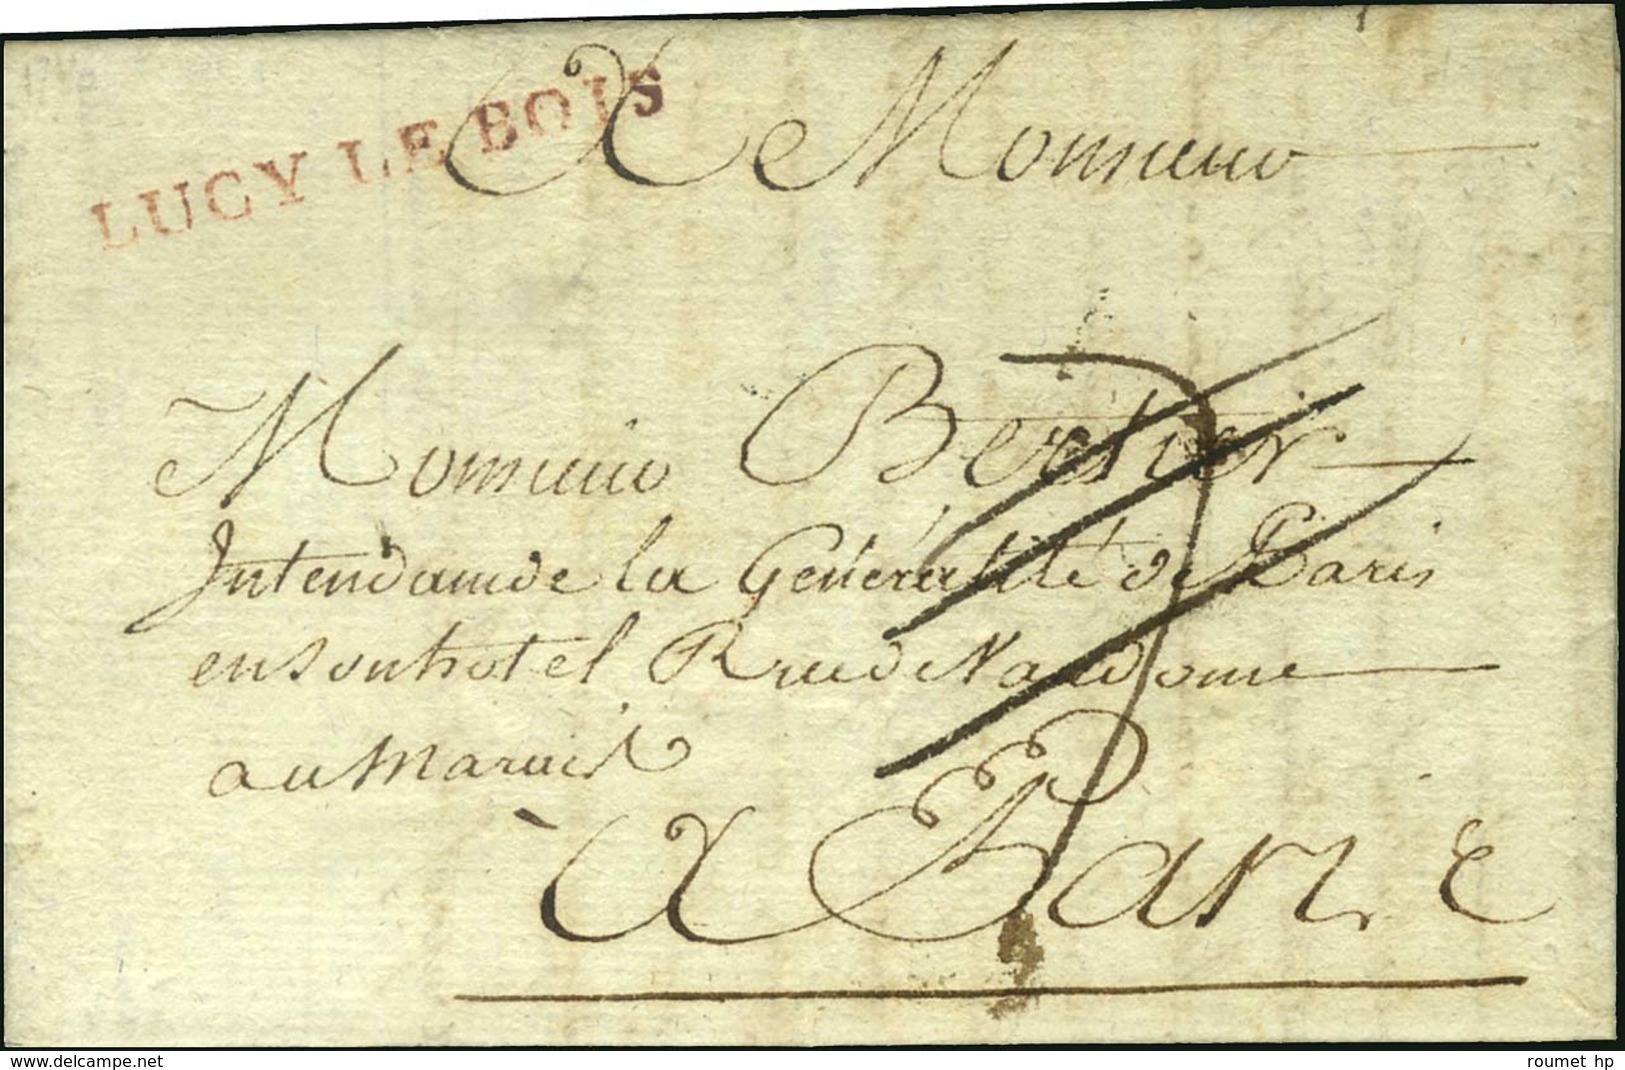 LUCY LE BOIS
A Monsieur
Monsieur Bertier
Intendant de la Généralité de Paris
en son hotel Rue de Vandome
au marais
à Paris
delcampe.net
roumet hp